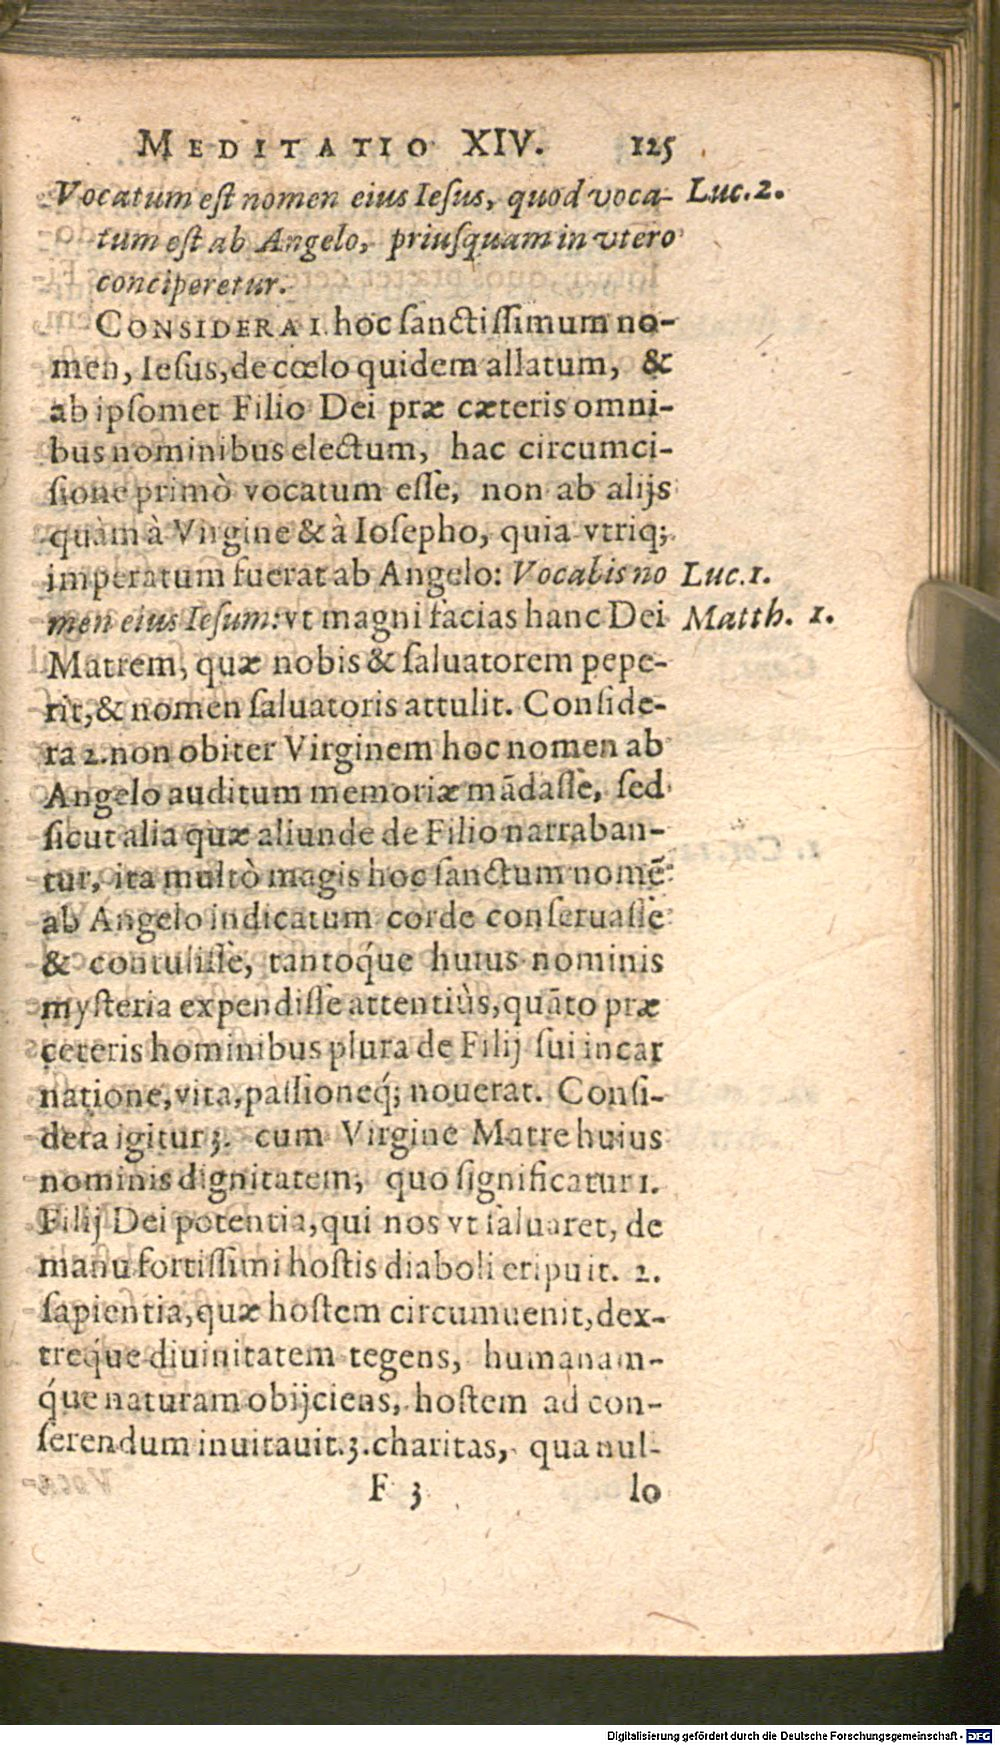 MEDITATIO XIV. 125
Vocatum eſt nomen eius Ieſus, quod voca- Luc. 2.
tum eſt ab Angelo, priuſquam in vtero
conciperetur.
CONSIDERA 1. hoc ſanctiſſimum no-
men, Ieſus, de cœlo quidem allatum, &
ab ipſomet Filio Dei præ cæteris omni-
bus nominibus electum, hac circumci-
ſione primò vocatum eſſe, non ab alijs
quàm à Virgine & à Ioſepho, quia vtriq;
imperatum fuerat ab Angelo: Vocabis no Luc. 1.
men eius Ieſum: vt magni facias hanc Dei Matth. 1.
Matrem, quæ nobis & ſaluatorem pepe-
rit, & nomen ſaluatoris attulit. Conſide-
ra 2. non obiter Virginem hoc nomen ab
Angelo auditum memoriæ mãdaſſe, ſed
ſicut alia quæ aliunde de Filio narraban-
tur, ita multò magis hoc ſanctum nomẽ
ab Angelo indicatum corde conſeruaſſe
& contuliſſe, tantoq́ue huius nominis
myſteria expendiſſe attentiùs, quãto præ
ceteris hominibus plura de Filij ſui incar
natione, vita, paſſioneq́; nouerat. Conſi-
dera igitur 3. cum Virgine Matre huius
nominis dignitatem, quo ſignificatur 1.
Filij Dei potentia, qui nos vt ſaluaret, de
manu fortiſſimi hoſtis diaboli eripuit. 2.
ſapientia, quæ hoſtem circumuenit, dex-
treq́ue diuinitatem tegens, humanam-
q́ue naturam obijciens, hoſtem ad con-
ſerendum inuitauit. 3. charitas, qua nul-
F 3 lo
Digitalisierung gefördert durch die Deutsche Forschungsgemeinschaft - DFG